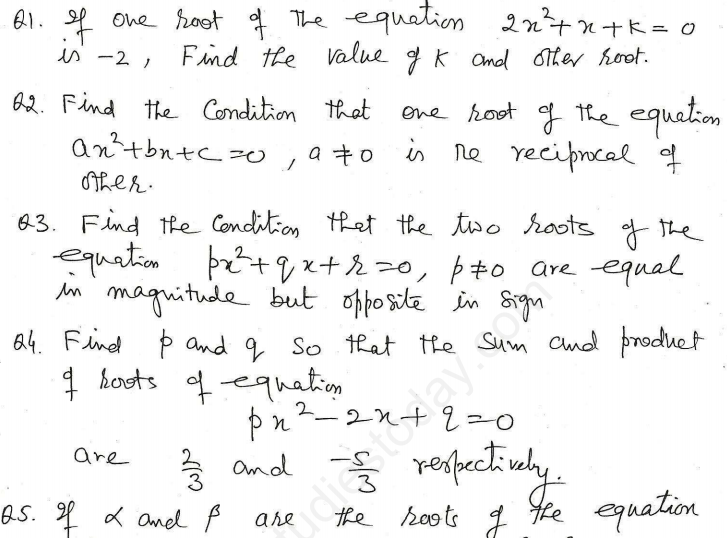 Q1. If one root of The equation 2x²+x+k = 0
is -2, Find the value of k and other root.
Q2. Find the Condition that one root of the equation
ax²+bx+c=0, a≠0 is the reciprocal of
other.
Q3. Find the Condition that the two roots of the
equation px²+qx+r=0, p≠0 are equal
in magnitude but opposite in sign
Q4. Find p and q so that the sum and product
of roots of equation
px²-2x+q=0
are 2/3 and -5/3 respectively.
Q5. If α and β are the roots of the equation
studiestoday.com